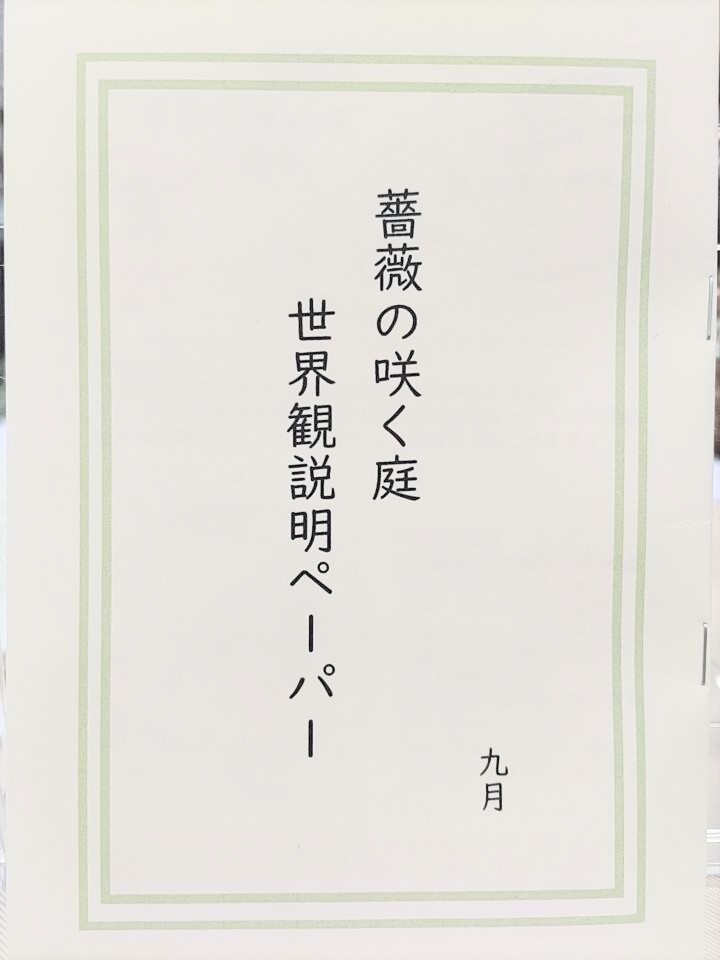 薔薇の咲く庭
世界観説明ペーパー
九月